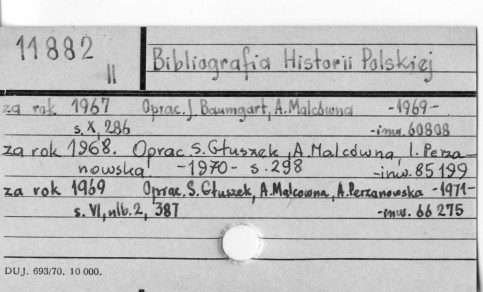 11882
II
Bibliografia Historii Polskiej
za rok 1967 Oprac. J. Baumgart, A. Malcówna -1969-
s. X, 286 -inw. 60808
za rok 1968. Oprac S. Głuszek, A. Malcówna, I. Perza-
nowska, -1970- s. 298 -inw. 85199
za rok 1969 Oprac. S. Głuszek, A. Malcowna, A. Perzanowska -1971-
s. VI, nlb. 2, 387 -inw. 66 275
DUJ. 693/70. 10 000.